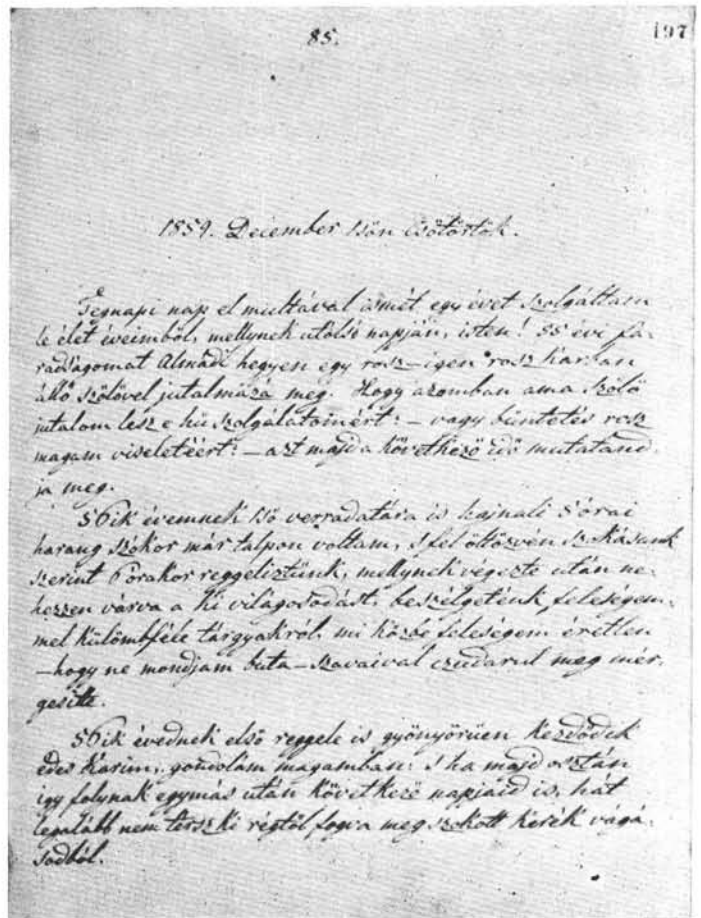 85.
197
1859. December 1sőn Csötörtök.
Tegnapi nap el multával ismét egy évet szolgáltam
le élet éveimből, mellynek utolsó napján, isten! 55 évi fá-
radságomat Almádi hegyen egy rosz – igen rosz karban
álló szőlővel jutalmazá meg. Hogy azomban ama szőlő
jutalom lesz e hü szolgálatomért: – vagy büntetés rosz
magam viseletéért: – azt majd a következő idő mutatand-
ja meg.
56ik évemnek 1ső verradatára is hajnali 5 órai
harang szókor már talpon voltam, s fel öltözvén szokásunk
szerint 6 órakor reggeliztünk, mellynek végezte után ne-
hezzen várva a ki világosodást, beszélgeténk feleségem-
mel külömbféle tárgyakról, mi közbe feleségem éretlen
– hogy ne mondjam buta – szavaival czudarul meg mér-
gesitte.
56ik évednek első reggele is gyönyörüen kezdődik
édes Karim, gondolám magamban: s ha majd osztán
igy folynak egymás után következő napjaid is, hát
legalább nem térsz ki régtől fogva meg szokott kerék vágá-
sodból.